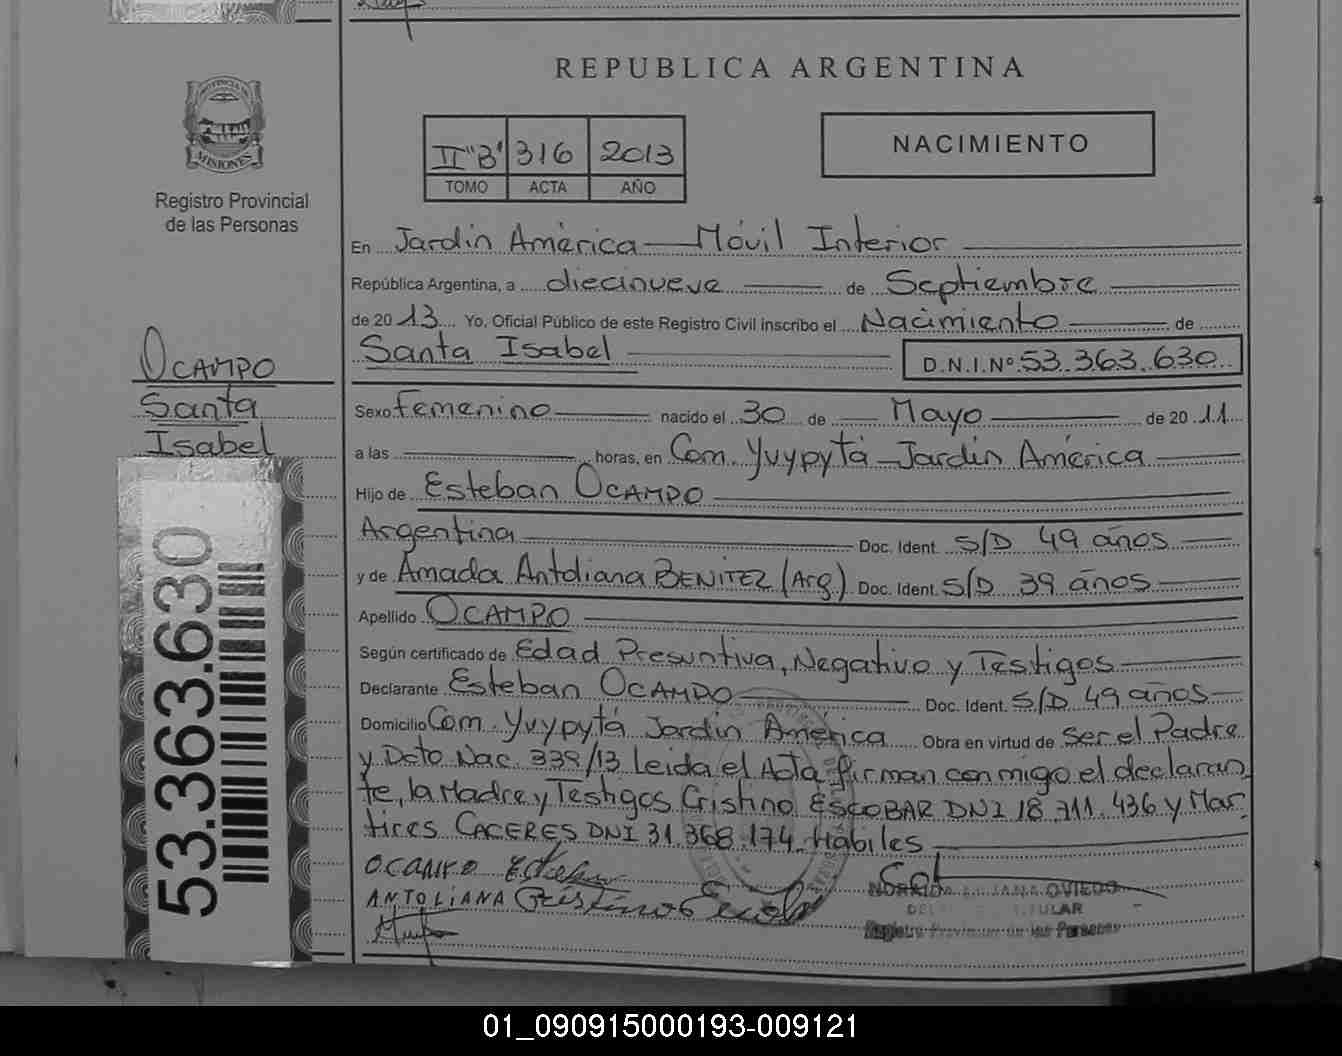 REPUBLICA ARGENTINA
PROVINCIA DE
MISIONES
Registro Provincial
de las Personas
II "B" 316 2013
TOMO ACTA AÑO
NACIMIENTO
En Jardín América Móvil Interior
República Argentina, a diecinueve de Septiembre
de 2013 Yo, Oficial Público de este Registro Civil inscribo el Nacimiento de
Santa Isabel D.N.I.Nº 53.363.630
OCAMPO
Santa
Isabel
Sexo Femenino nacido el 30 de Mayo de 2011
a las horas, en Com. Yvypytá Jardín América
Hijo de Esteban OCAMPO
Argentina Doc. Ident. S/D 49 años
y de Amada Antoliana BENITEZ (Arg.) Doc. Ident. S/D 39 años
Apellido OCAMPO
Según certificado de Edad Presuntiva, Negativo y Testigos
Declarante Esteban OCAMPO Doc. Ident. S/D 49 años
Domicilio Com. Yvypytá Jardín América Obra en virtud de Ser el Padre
y Dcto Nac. 339/13 Leida el Acta firman conmigo el declaran
te, la Madre y Testigos Cristino ESCOBAR DNI 18.711.436 y Mar
tires CACERES DNI 31.368.174 Hábiles
OCAMPO Esteban
ANTOLIANA Cristino Escobar
OVIEDO
TITULAR
Registro Provincial de las Personas
53.363.630
01_090915000193-009121